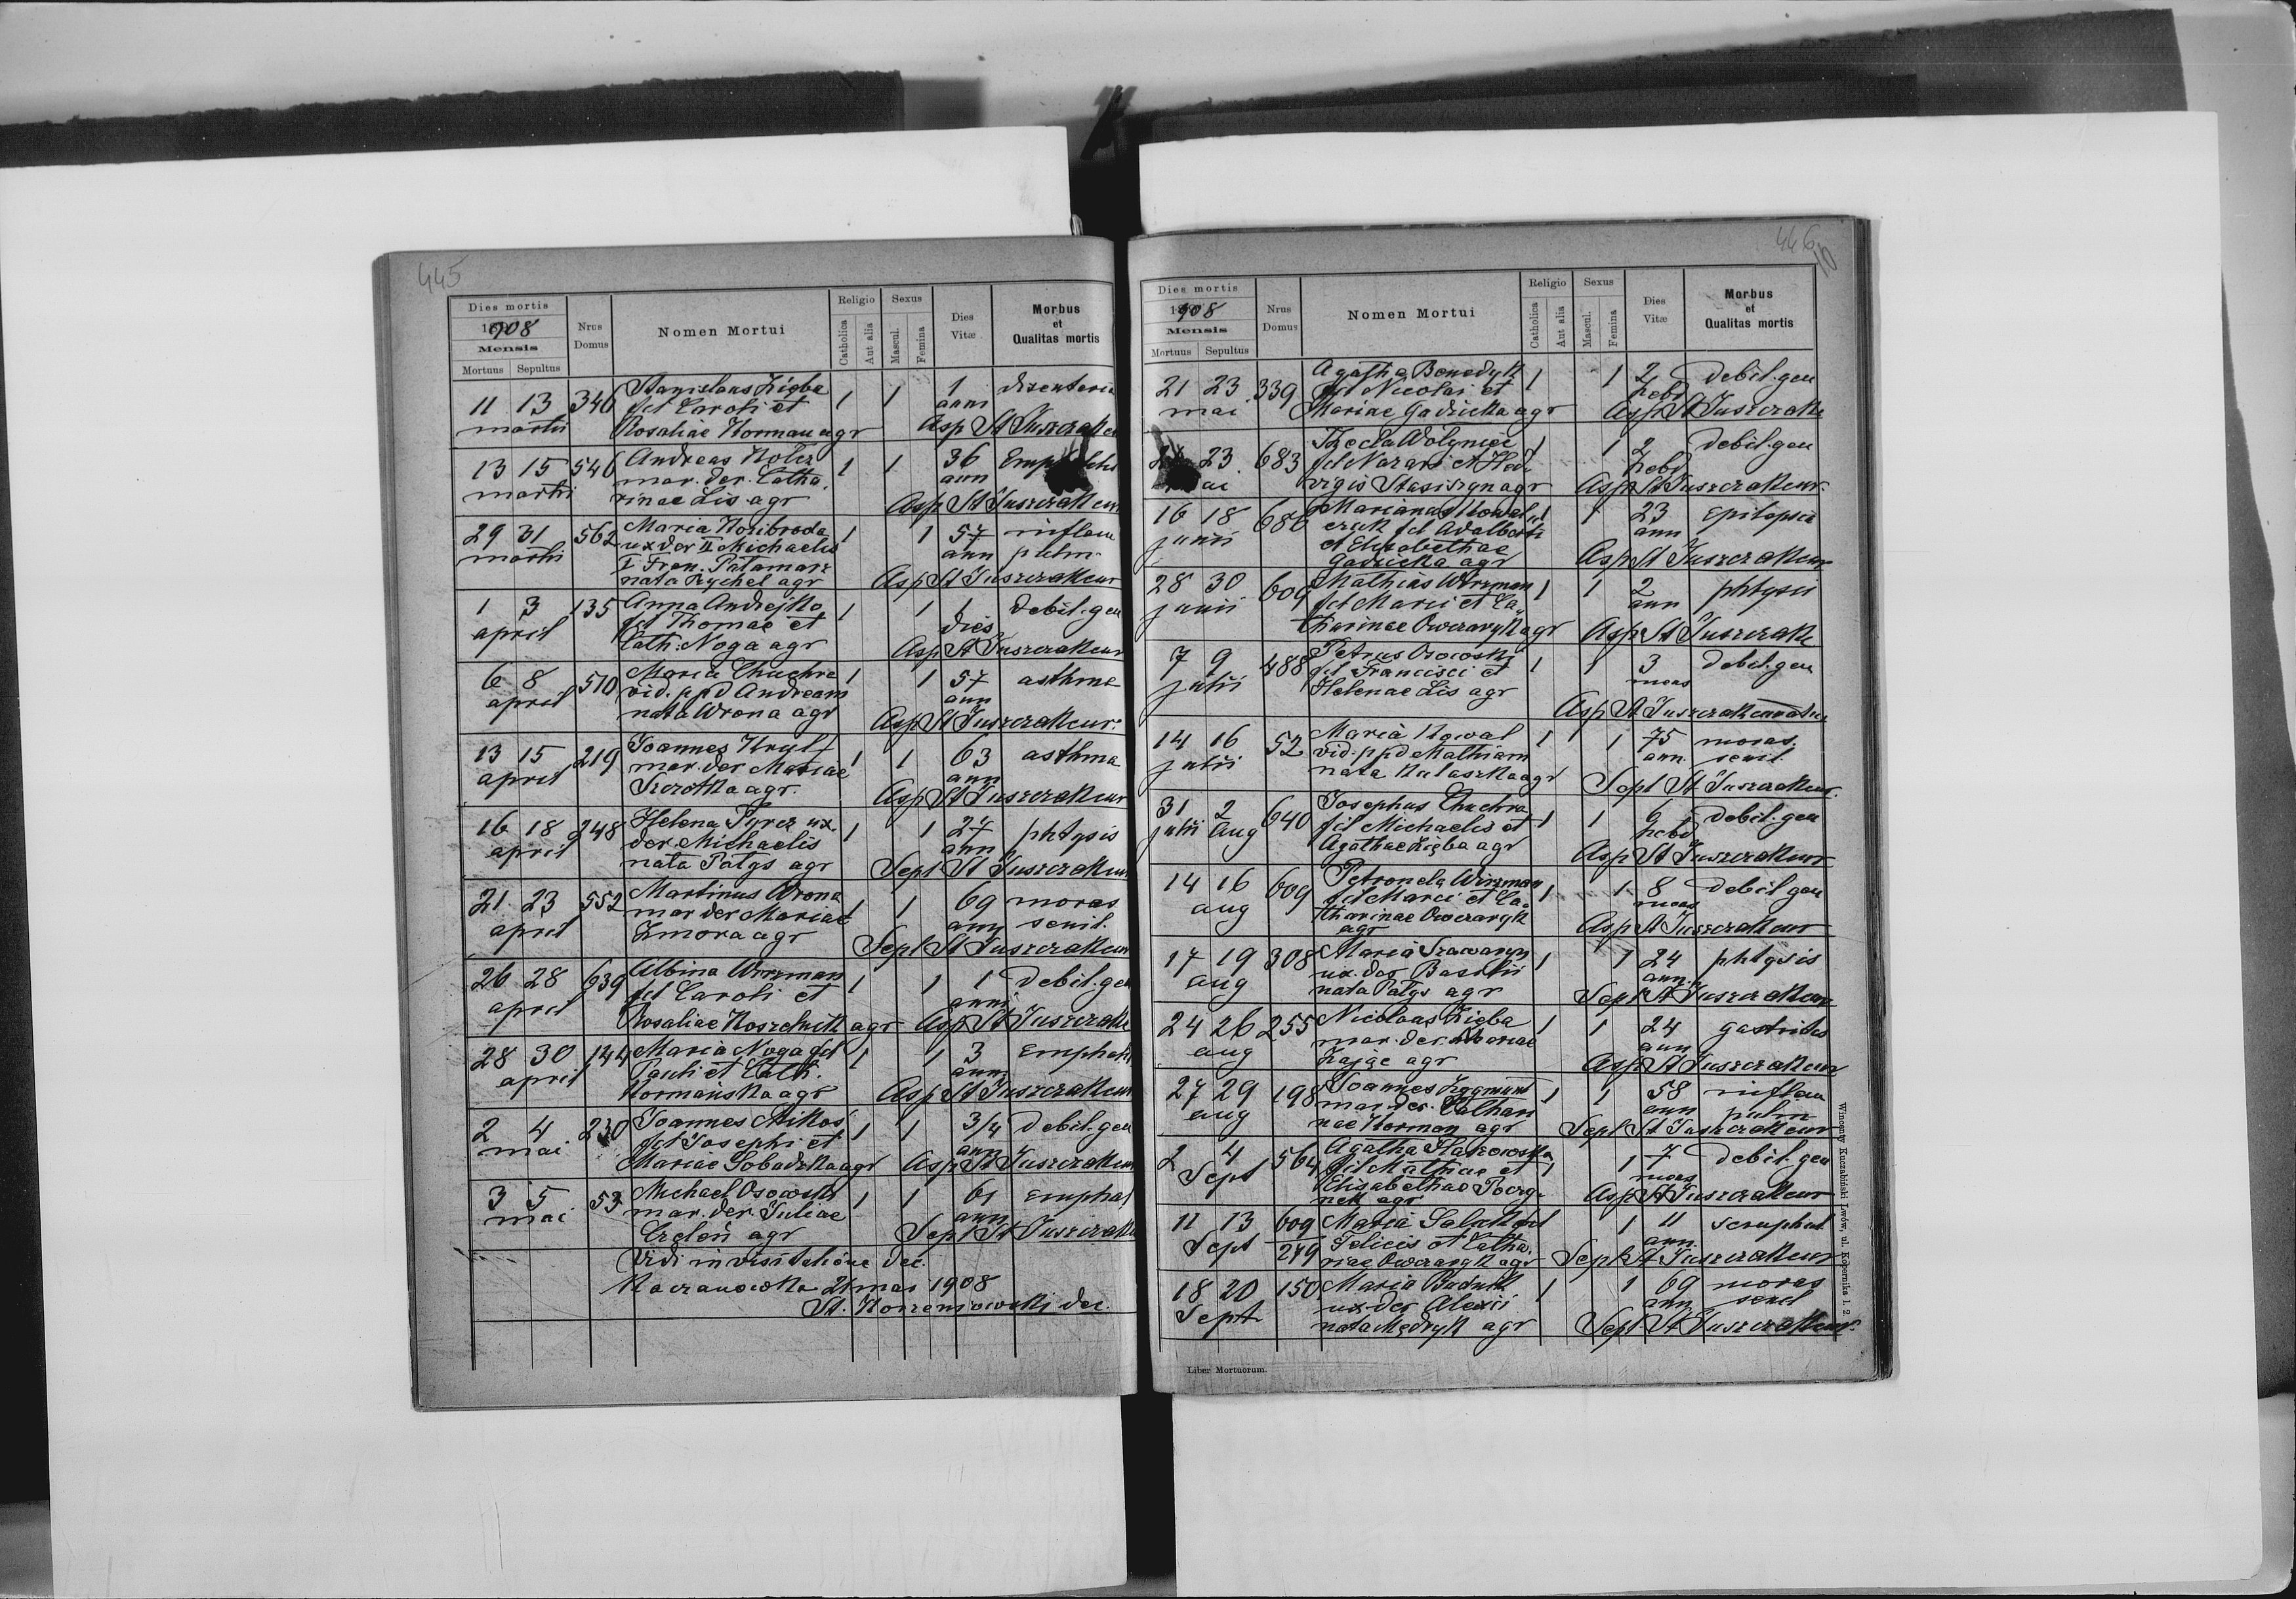 445
Dies mortis
1908
Mensis
Mortuus Sepultus
Nrus Domus
Nomen Mortui
Religio
Catholica
Aut alia
Sexus
Mascul.
Femina
Dies Vitæ
Morbus
et
Qualitas mortis
11 13 346 Stanislaus Zięba 1 1 1 disenteria
martii fil Caroli et anni
Rosaliae Korman agr Asp St Juszczak
13 15 546 Andreas Kolcz 1 1 36
martii mar. der. Catha ann
rinae Lis agr Asp St Juszczakeur
29 31 562 Maria Kozibroda 1 1 57 inflam
martii ux der II Michaelis ann pulm
I Fran. Patamarz
nata Rychel agr Asp St Juszczakeur
1 3 135 Anna Andrejko 1 1 1 debil. gen
april fil Thomae et dies
Cath. Noga agr Asp St Juszczakeur
6 8 510 Maria Chuchra 1 1 57 asthma
april vid. ppd Andream ann
nata Wrona agr Asp St Juszczakeur
13 15 219 Joannes Krul 1 1 63 asthma
april mar. der Mariae ann
Szczotka agr. Asp St Juszczakeur
16 18 248 Helena Pyrcz ux. 1 1 27 phtysis
april der. Michaelis ann
nata Patys agr Sept St Juszczakeur
21 23 552 Martinus Wrona 1 1 69 moras
april mar der Mariae ann senil.
Zmora agr Sept St Juszczakeur
26 28 639 Albina Wirzman 1 1 1 debil. gen
april fil Caroli et anni
Rosaliae Koszelnik agr Asp St Juszczake
28 30 144 Maria Noga fil 1 1 3
april Pauli et Cath. ann
Kormańska agr Asp St Juszczakeur
2 4 230 Joannes Mikoś 1 1 3/4 debil. gen
mai fil Josephi et ann
Mariae Sobadzka agr Asp St Juszczakeur
3 5 53 Michael Osowski 1 1 61
mai mar. der. Juliae ann
agr Sept St Juszczake
Vidi in visitatione dec.
Kaczanowka 21 mai 1908
St. Korzeniowski dec.
446
10
Dies mortis
1908
Mensis
Mortuus Sepultus
Nrus Domus
Nomen Mortui
Religio
Catholica
Aut alia
Sexus
Mascul.
Femina
Dies Vitæ
Morbus
et
Qualitas mortis
21 23 339 Agatha Benedyk 1 1 2 debil. gen
mai fil Nicolai et hebd
Mariae Gadzicka agr Asp St Juszczake
23 683 Thecla Wolyniec 1 1 2 debil. gen
fil Nazari et Hed hebd
vigis Stasiszyn agr Asp St Juszczakeur.
16 18 686 Mariana Kowal 1 1 23 epilepsia
junii czuk fil Adalberti ann
et Elisabethae
Gadzicka agr Asp St Juszczakeur
28 30 609 Mathias Wirzman 1 1 2 phtysis
junii fil Marci et Ca ann
tharinae Owczaryk agr Asp St Juszczake
7 9 488 Petrus Osowski 1 1 3 debil. gen
julii fil Francisci et mens
Helenae Lis agr
Asp St Juszczak
14 16 52 Maria Kowal 1 1 75 moras.
julii vid. ppd Mathiam ann senil
nata Kulaszka agr Sept St Juszczakeur.
31 2 640 Josephus Chuchra 1 1 6 debil. gen
julii aug fil Michaelis et hebd
Agathae Zięba agr Asp St Juszczakeur
14 16 609 Petronela Wirzman 1 1 8 debil gen
aug fil Marci et Ca mens
tharinae Owczaryk
agr Asp St Juszczakeur
17 19 308 Maria Szawaryn 1 1 24 phtysis
aug ux. der Basilii ann
nata Patys agr Sept St Juszczakeur
24 26 255 Nicolaus Zięba 1 1 24 gastritis
aug mar. der. Mariae ann
Zając agr Asp St Juszczakeur
27 29 198 Joannes Zygmunt 1 1 58 inflam
aug mar. der. Cathari ann pulm
nae Korman agr Sept St Juszczakeur
2 4 564 Agatha 1 1 7 debil. gen
Sept fil Mathiae et mens
Elisabethae
agr Asp St Juszczakeur
11 13 609 Maria Salak fil 1 11 scruphul
Sept 249 Felicis et Catha ann
rinae Owczaryk agr Sept St Juszczakeur
18 20 150 Maria Budnik 1 1 69 moras
Sept ux der Alexii ann senil
nata Mędryk agr Sept. St Juszczakeur.
Liber Mortuorum.
Wincenty Kuczabiński Lwów, ul. Kopernika l. 2.